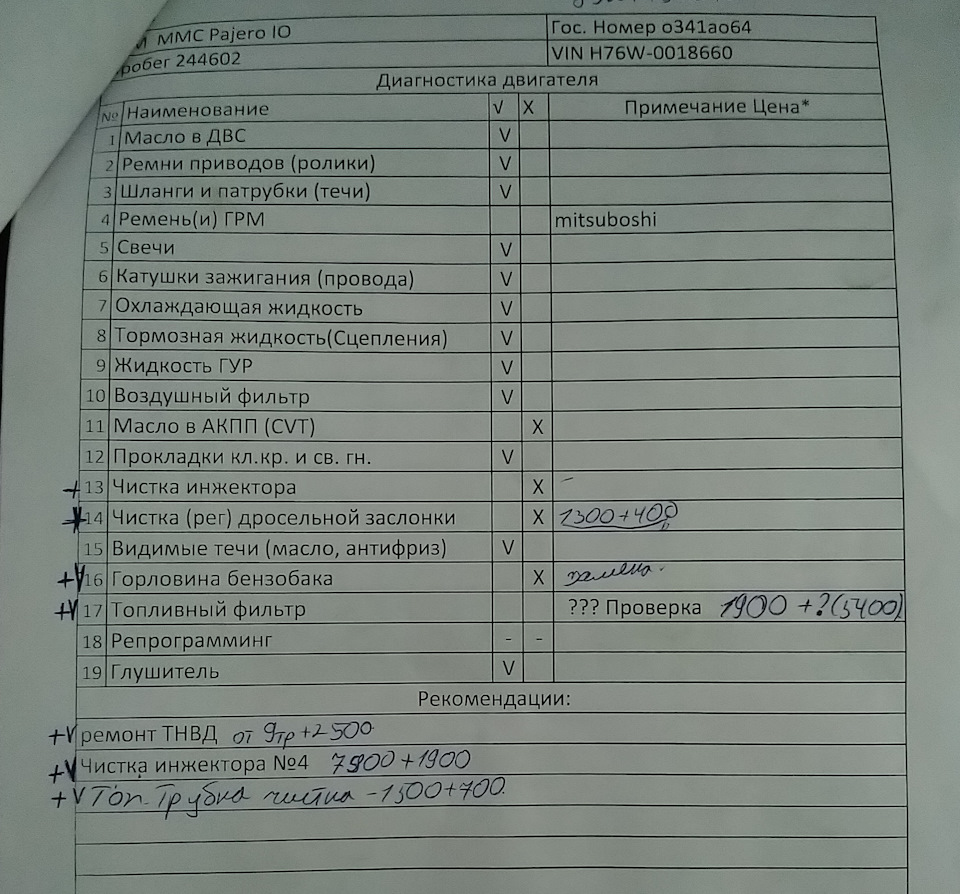 ММС Pajero IO Гос. Номер о341ао64
робег 244602 VIN H76W-0018660
Диагностика двигателя
№ Наименование √ X Примечание Цена*
1 Масло в ДВС V
2 Ремни приводов (ролики) V
3 Шланги и патрубки (течи) V
4 Ремень(и) ГРМ mitsuboshi
5 Свечи V
6 Катушки зажигания (провода) V
7 Охлаждающая жидкость V
8 Тормозная жидкость(Сцепления) V
9 Жидкость ГУР V
10 Воздушный фильтр V
11 Масло в АКПП (CVT) X
12 Прокладки кл.кр. и св. гн. V
+ 13 Чистка инжектора X -
+ 14 Чистка (рег) дросельной заслонки X 1300+400
15 Видимые течи (масло, антифриз) V
+V 16 Горловина бензобака X замена.
+V 17 Топливный фильтр ??? Проверка 1900 +?(5400)
18 Репрограмминг - -
19 Глушитель V
Рекомендации:
+V ремонт ТНВД от 9тр+2500
+V Чистка инжектора №4 7900+1900
+V Топ. Трубка чистка -1500+700.